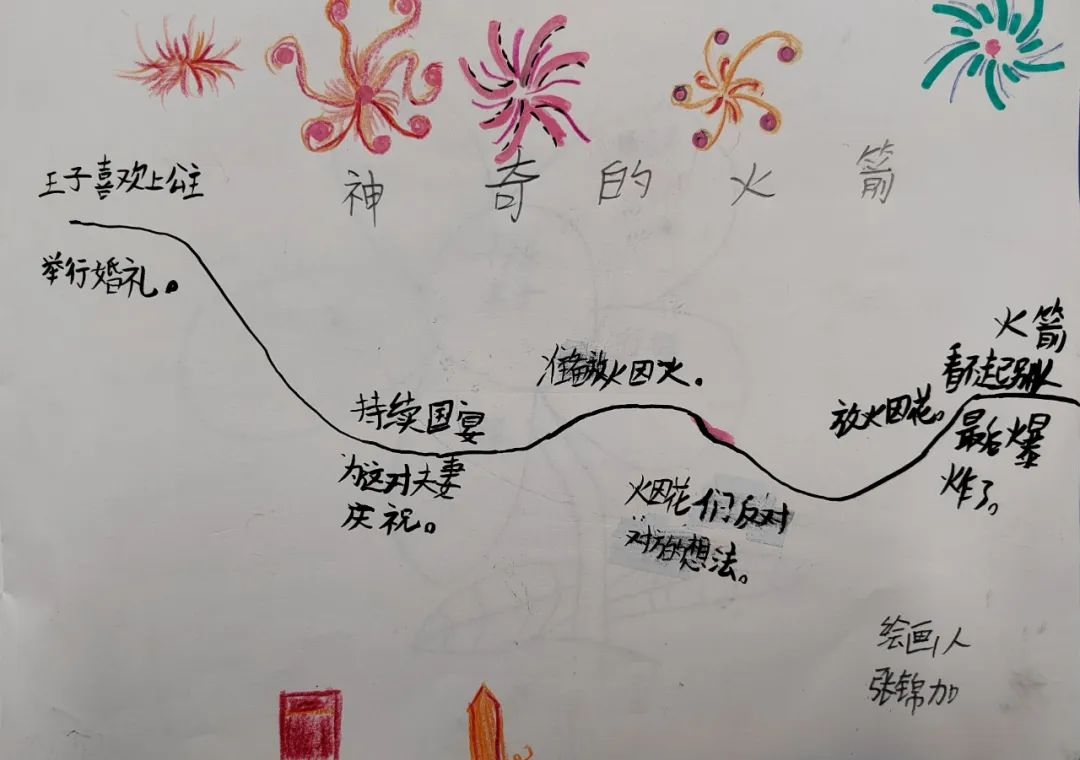 神奇的火箭
王子喜欢上公主
举行婚礼。
持续国宴
为这对夫妻
庆祝。
准备放火因火。
火因花们反对
对方的想法。
放火因花。
火箭
看不起别人
最后爆
炸了。
绘画人
张锦加